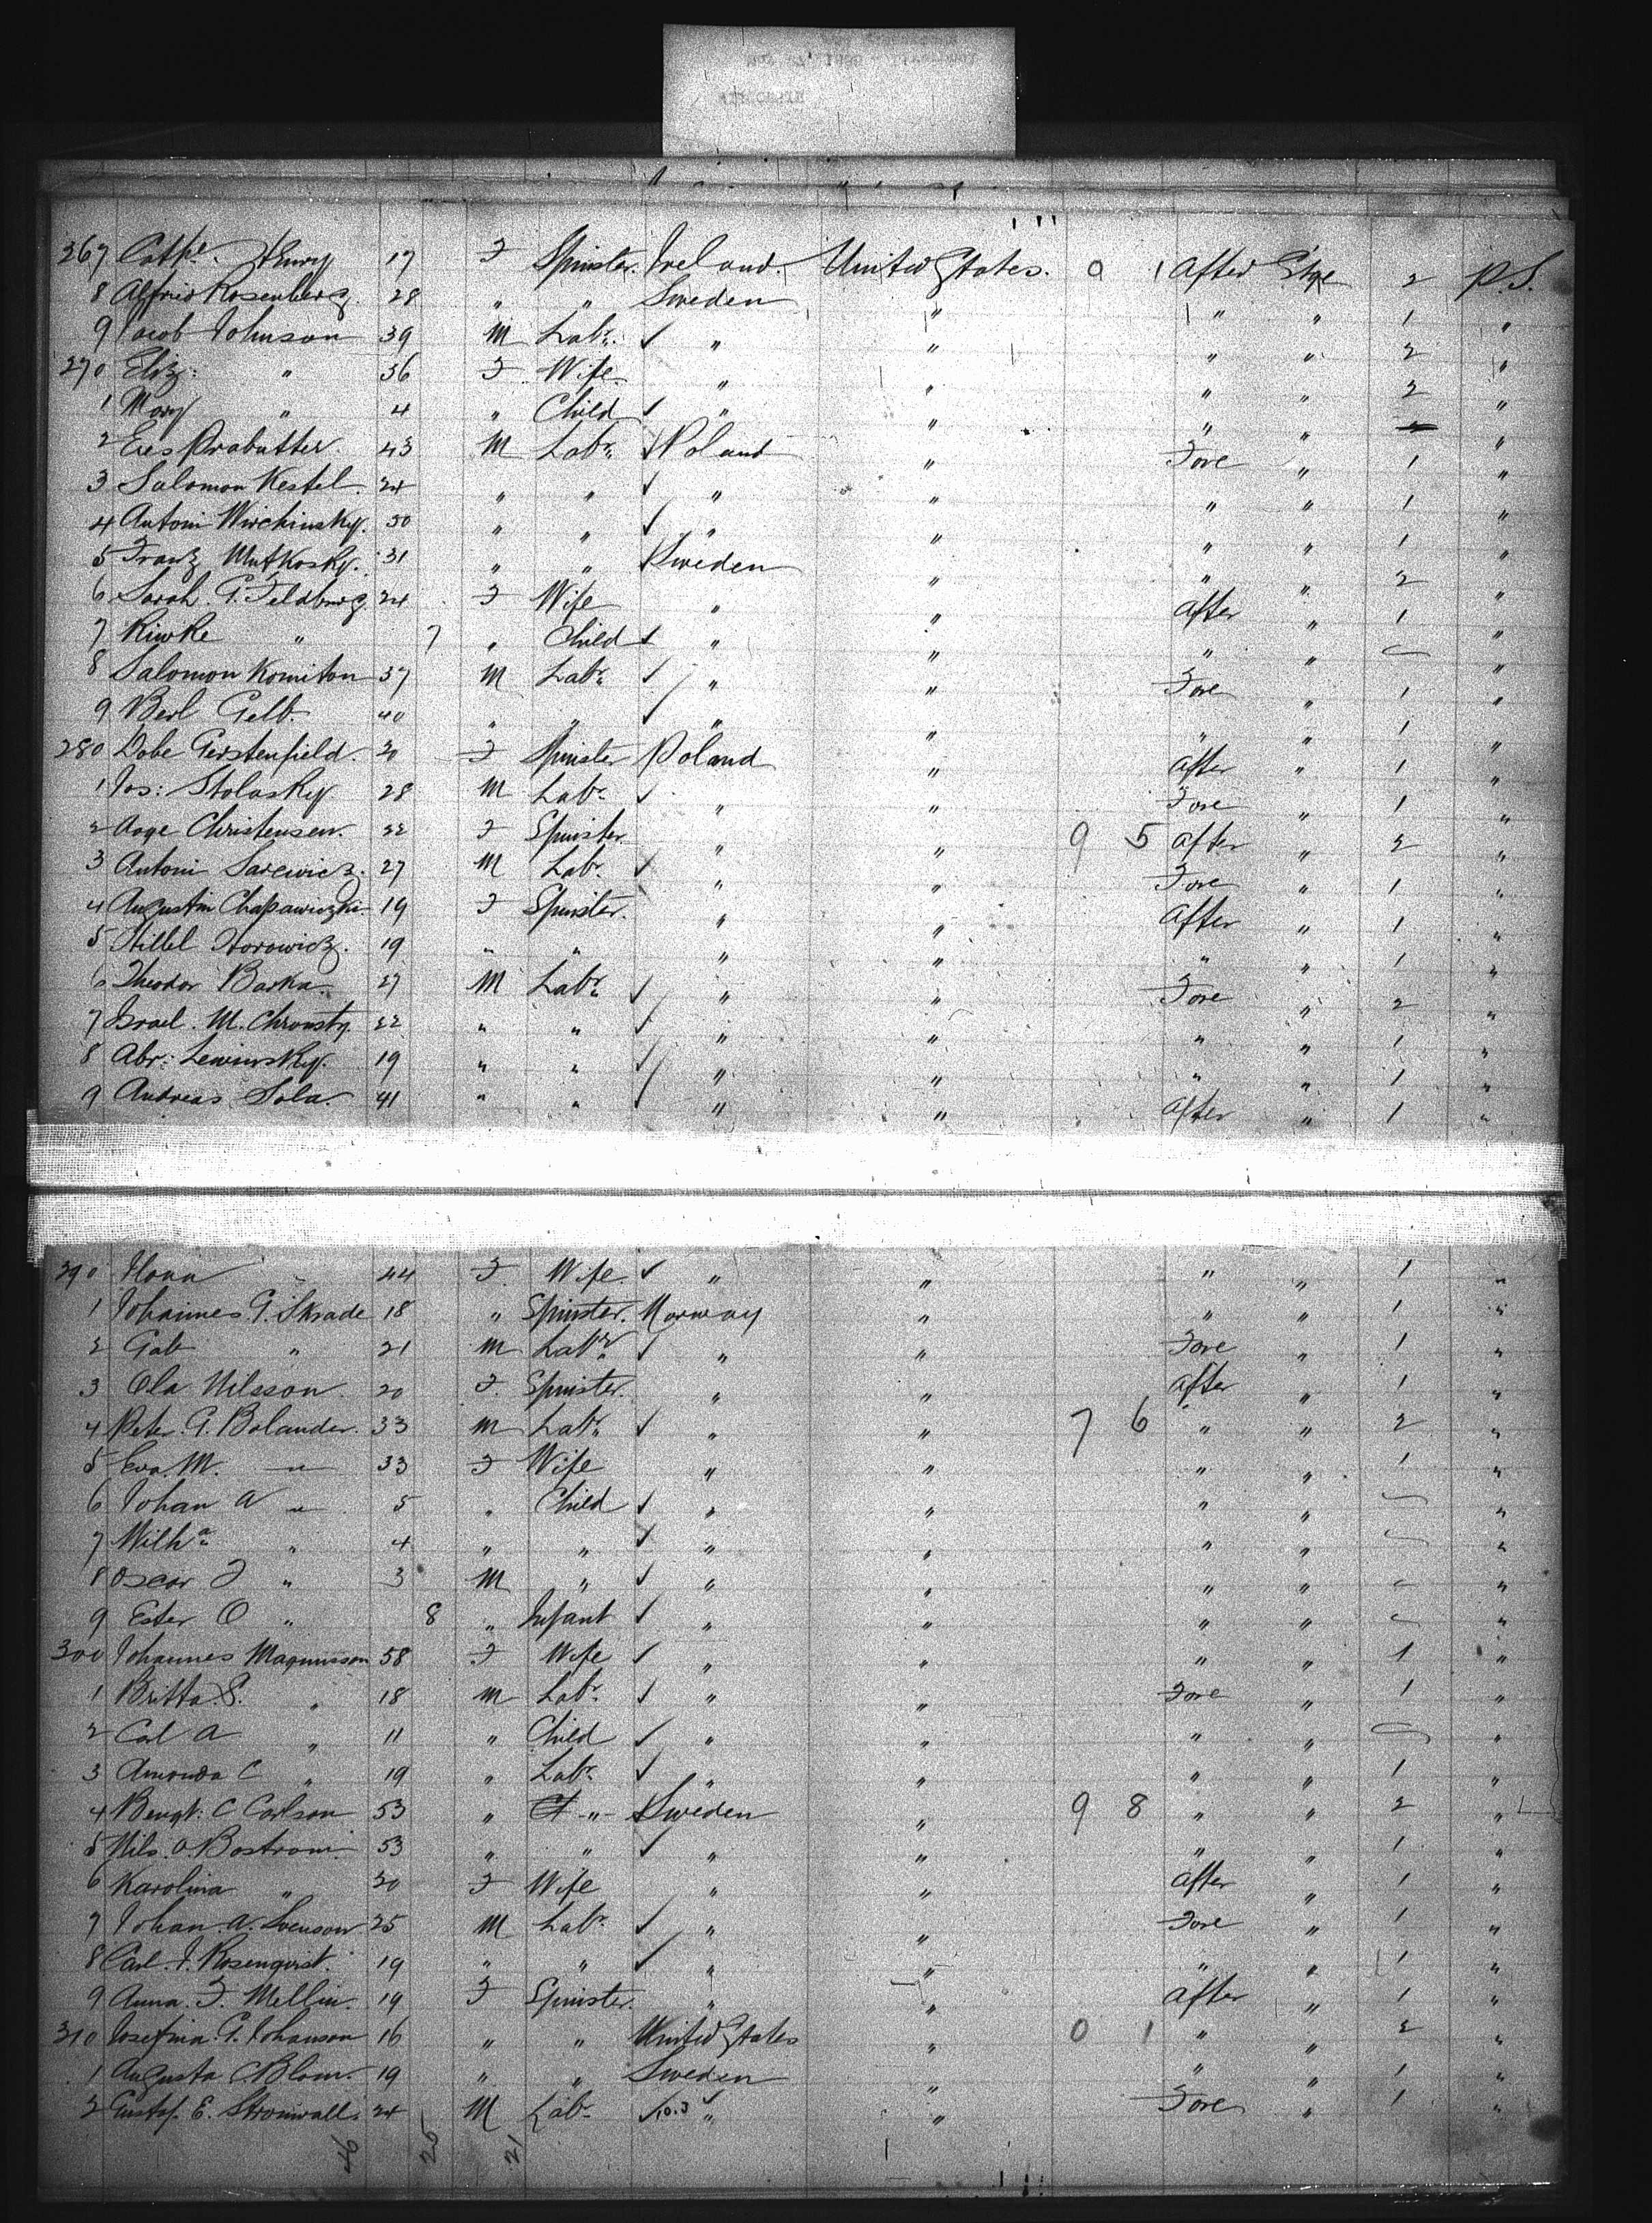 267 Cathe. Henry 17 F Spinster. Ireland. United States. 0 1 After Stge 2 P.S.
8 Alfried Rosenberg. 28 " " Sweden " " " 1 "
9 Jacob Johnson 39 M Labr. ✓ " " " " 2 "
270 Eliz: " 36 F Wife " " " " 2 "
1 Mary " 4 " Child ✓ " " " " "
2 43 M Labr. ✓ Poland " Fore " 1 "
3 Salomon Kestel. 24 " " ✓ " " " " 1 "
4 Antoni Wirchinsky. 50 " " ✓ " " " " 1 "
5 Franz Mutkosky. 31 " " Sweden " " " 2 "
6 Sarah. G. Feldburg 24 F Wife " " After " 1 "
7 Riwke " 7 " Child ✓ " " " " "
8 Salomon Komiton 37 M Labr. ✓ " " Fore " 1 "
9 Berl Gelb. 40 " " ✓ " " " " 1 "
280 Dobe Gerstenfield. 20 F Spinster Poland " After " 1 "
1 Jos: Stolasky 28 M Labr. ✓ " " Fore " 1 "
2 Aage Christensen. 22 F Spinster " " 9 5 After " 2 "
3 Antoni Sarewicz. 27 M Labr. ✓ " " Fore " 1 "
4 Augustin 19 F Spinster. " " After " 1 "
5 Hillel Horowicz. 19 " " " " " " 1 "
6 Theodor Barka. 27 M Labr. ✓ " " Fore " 2 "
7 Israel. M. 22 " " ✓ " " " " 1 "
8 Abr: Lewinsky. 19 " " ✓ " " " " 1 "
9 Andreas Sola. 41 " " ✓ " " After " 1 "
290 44 F. Wife ✓ " " " " 1 "
1 Johannes. G. Skrade 18 " Spinster. Norway " " " 1 "
2 Gab " 21 M Labr. ✓ " " Fore " 1 "
3 Ola Nilsson. 20 F. Spinster. " " After " 1 "
4 Peter. G. Bolander. 33 M Labr. ✓ " " 7 6 " " 2 "
5 Eva. M. " 33 F Wife " " " " 1 "
6 Johan A " 5 " Child ✓ " " " " "
7 Wilha " 4 " " ✓ " " " " "
8 Oscar F " 3 M " ✓ " " " " "
9 Ester O " 8 " Infant ✓ " " " " "
300 Johannes Magnusson 58 F Wife ✓ " " " " 1 "
1 Britta S. " 18 M Labr. ✓ " " Fore " 1 "
2 Carl A " 11 " Child ✓ " " " " "
3 Amanda C " 19 " Labr. ✓ " " " " 1 "
4 Bengt: C Carlson 53 " " Sweden " 9 8 " " 2 "
5 Nils. O. Bostrom. 53 " " ✓ " " " " 1 "
6 Karolina " 30 F Wife " " After " 1 "
7 Johan. A. Svenson 25 M Labr. ✓ " " Fore " 1 "
8 Carl. J. Rosenqvist. 19 " " ✓ " " " " 1 "
9 Anna. F. Mellin. 19 F Spinster. " " After " 1 "
310 Josefina. G. Johanson 16 " " United States " 0 1 " " 2 "
1 Augusta C Blom. 19 " " Sweden " " " 1 "
2 Gustaf. E. Stromvall. 24 M Labr. ✓ 10.3 " " Fore " 1 "
25 21